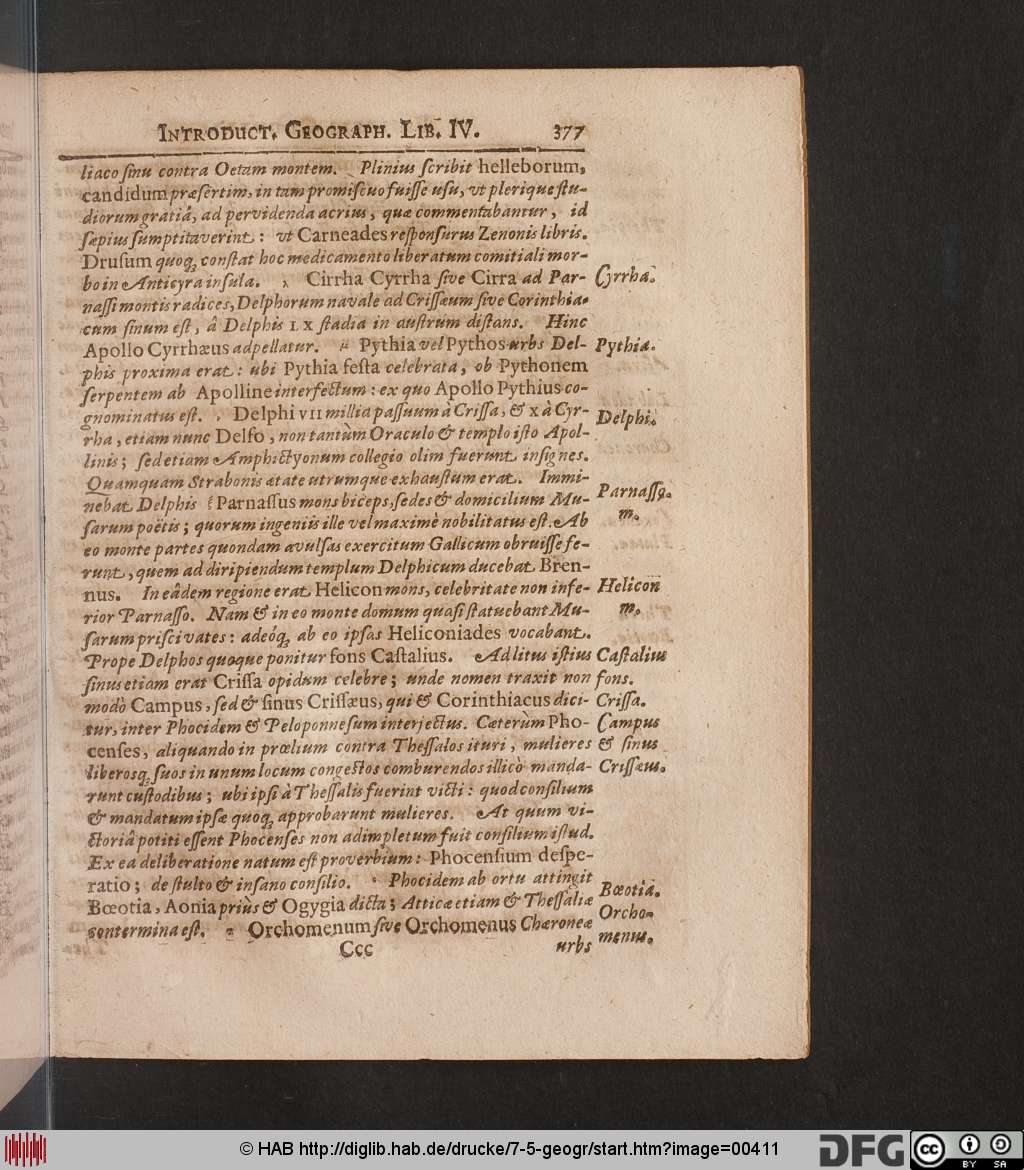 INTRODUCT. GEOGRAPH. LIB. IV. 377
liaco ſinu contra Oetam montem. Plinius ſcribit helleborum,
candidum præſertim, in tam promiſcuo fuiſſe uſu, vt plerique ſtu-
diorum gratiâ, ad pervidenda acrius, quæ commentabantur, id
ſæpius ſumptitaverint: vt Carneades reſponſurus Zenonis libris.
Druſum quoq; conſtat hoc medicamento liberatum comitiali mor-
bo in Anticyra inſula. Cirrha Cyrrha ſive Cirra ad Par- Cyrrha.
naſſi montis radices, Delphorum navale ad Criſſæum ſive Corinthia-
cum ſinum eſt, â Delphis LX ſtadia in auſtrum diſtans. Hinc
Apollo Cyrrhæus adpellatur. Pythia vel Pythos urbs Del- Pythia.
phis proxima erat: ubi Pythia feſta celebrata, ob Pythonem
ſerpentem ab Apolline interfectum: ex quo Apollo Pythius co-
gnominatus eſt. Delphi VII millia paſſuum à Criſſa, & X à Cyr- Delphi.
rha, etiam nunc Delfo, non tantùm Oraculo & templo iſto Apol-
linis; ſed etiam Amphictyonum collegio olim fuerunt inſignes.
Quamquam Strabonis ætate utrumque exhauſtum erat. Immi-
nebat Delphis Parnaſſus mons biceps, ſedes & domicilium Mu- Parnaſſq.
ſarum poëtis; quorum ingeniis ille vel maximè nobilitatus eſt. Ab m.
eo monte partes quondam avulſas exercitum Gallicum obruiſſe fe-
runt, quem ad diripiendum templum Delphicum ducebat Bren-
nus. In eâdem regione erat Helicon mons, celebritate non infe- Helicon
rior Parnaſſo. Nam & in eo monte domum quaſi ſtatuebant Mu- m.
ſarum priſci vates: adeóq; ab eo ipſas Heliconiades vocabant.
Prope Delphos quoque ponitur fons Caſtalius. Ad litus iſtius Caſtalius
ſinus etiam erat Criſſa opidum celebre; unde nomen traxit non fons.
modò Campus, ſed & ſinus Criſſæus, qui & Corinthiacus dici- Criſſa.
tur, inter Phocidem & Peloponneſum interjectus. Cæterùm Pho- Campus
cenſes, aliquando in prœlium contra Theſſalos ituri, mulieres & ſinus
liberosq; ſuos in unum locum congeſtos comburendos illicò manda- Criſſæus.
runt cuſtodibus; ubi ipſi à Theſſalis fuerint victi: quod conſilium
& mandatum ipſæ quoq; approbarunt mulieres. At quum vi-
ctoriâ potiti eſſent Phocenſes non adimpletum fuit conſilium iſtud.
Ex ea deliberatione natum eſt proverbium: Phocenſium deſpe-
ratio; de ſtulto & inſano conſilio. Phocidem ab ortu attingit
Bœotia, Aonia priùs & Ogygia dicta; Atticæ etiam & Theſſaliæ Bœotia.
contermina eſt. Orchomenum ſive Orchomenus Chæroneæ Orcho-
menus.
Ccc urbs
© HAB http://diglib.hab.de/drucke/7-5-geogr/start.htm?image=00411
DFG
cc BY SA